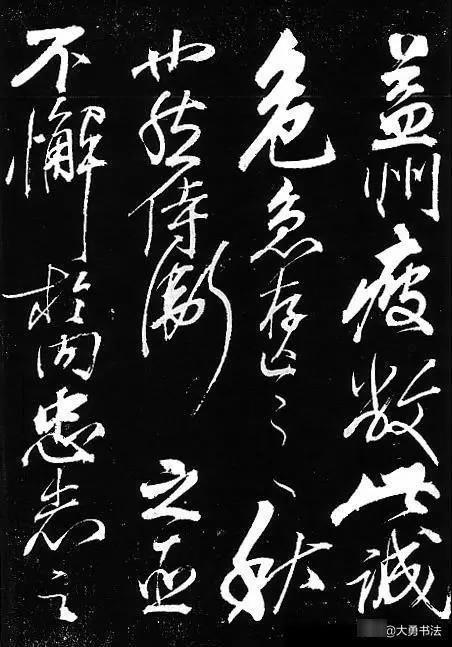 益州疲敝此誠
危急存亡之秋
也然侍衛之臣
不懈於内忠志之
@大勇书法